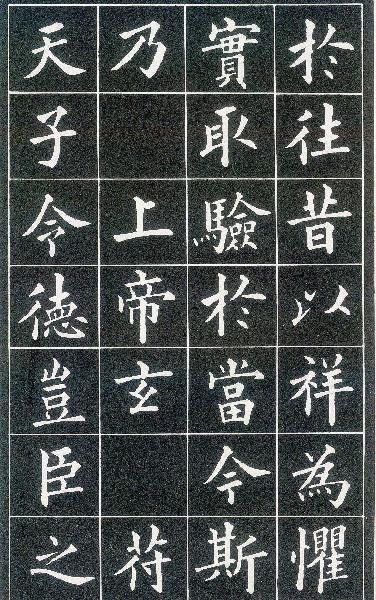 於往昔以祥為懼
實取驗於當今斯
乃上帝玄苻
天子令德豈臣之